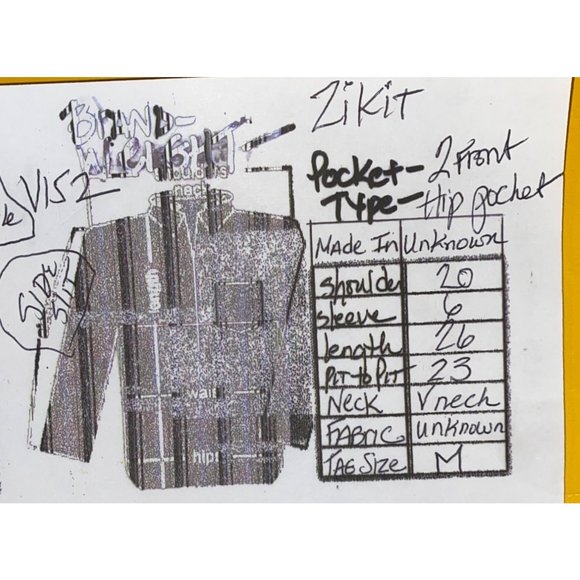 BRAND-
Zikit
shoulders
neck
V152
Pocket- 2 Front
Type- Hip pocket
SIDE
SLIT
Made In Unknown
Shoulder 20
Sleeve 6
length 26
Pit to Pit 23
Neck V neck
FABRIC unknown
Tag Size M
length
waist
hips